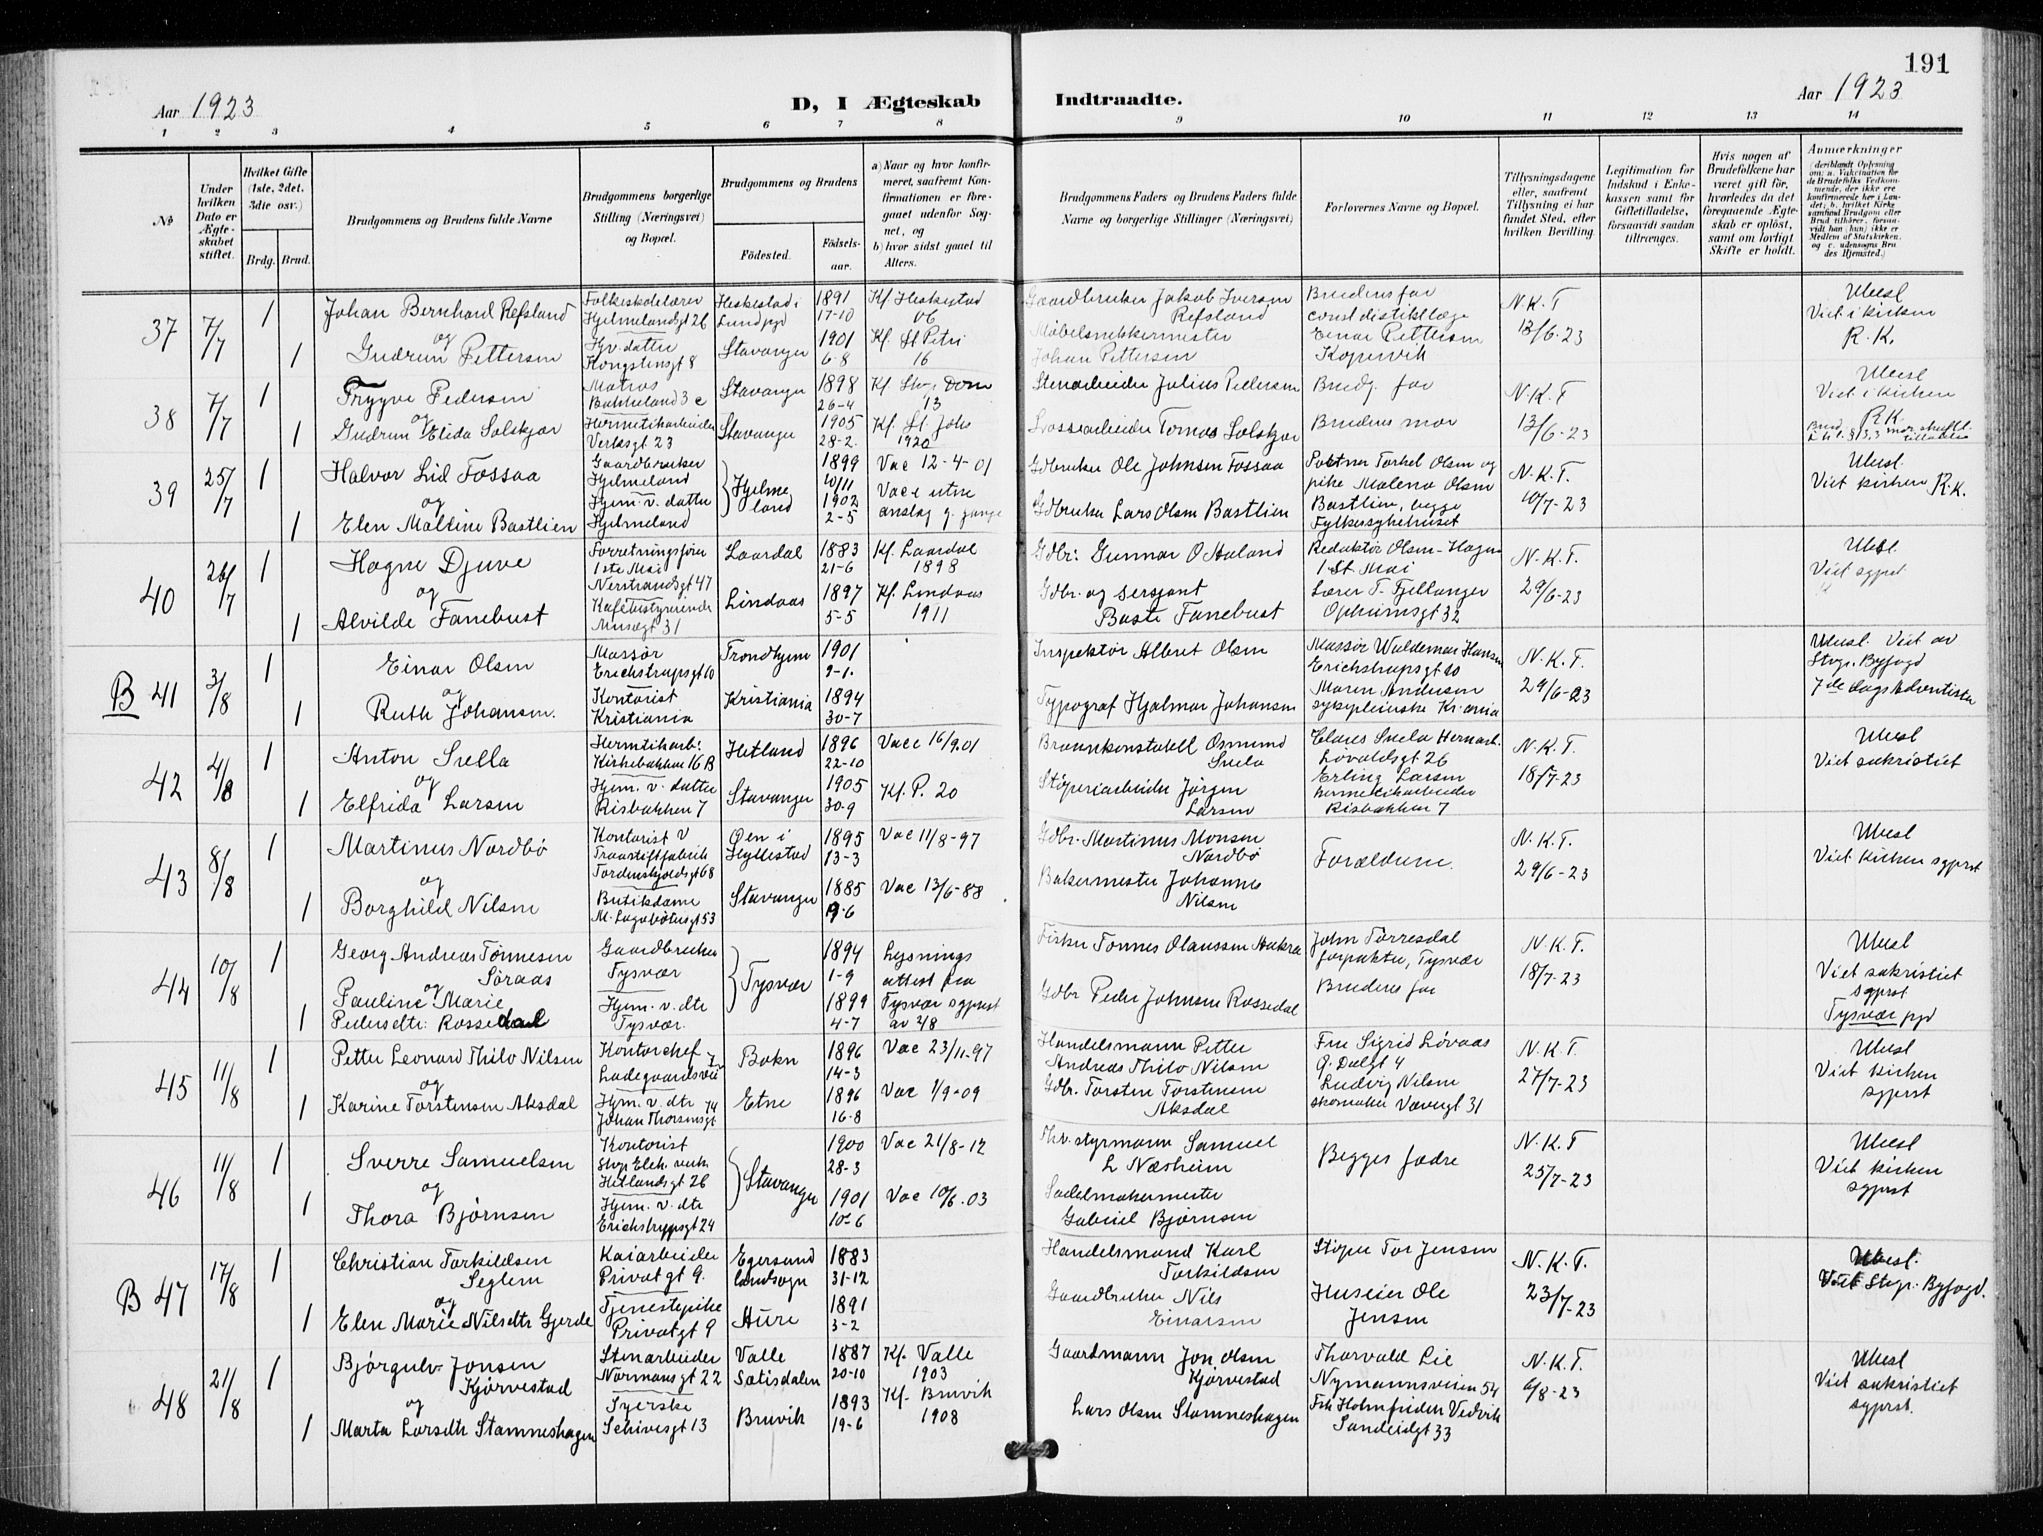 191
Aar 1923
D, I Ægteskab
Indtraadte.
Aar 1923
1 2 3 4 5 6 7 8 9 10 11 12 13 14
№
Under hvilken Dato er Ægteskabet stiftet.
Hvilket Gifte (1ste, 2det, 3die osv.)
Brdg. Brud.
Brudgommens og Brudens fulde Navne
Brudgommens borgerlige Stilling (Næringsvei) og Bopæl.
Brudgommens og Brudens
Fødested.
Fødselsaar.
a) Naar og hvor konfirmeret, saafremt Konfirmationen er foregaaet udenfor Sognet, og
b) hvor sidst gaaet til Alters.
Brudgommens Faders og Brudens Faders fulde Navne og borgerlige Stillinger (Næringsvei)
Forlovernes Navne og Bopæl.
Tillysningsdagene eller, saafremt Tillysning ei har fundet Sted, efter hvilken Bevilling.
Legitimation for Indskud i Enkekassen samt for Giftetilladelse, forsaavidt saadan tiltrænges.
Hvis nogen af Brudefolkene har været gift før, hvorledes da det foregaaende Ægteskab er opløst, samt om lovligt Skifte er holdt.
Anmærkninger
37 7/7 1
Johan Bernhard Refsland
og
1 Gudrun Pettersen
Folkeskolelærer
Hjelmelandsgt 26
Hjv. datter
Kongstensgt 8
Heskestad i
Lund pgd
Stavanger
1891
17-10
1901
6-8
Kf. Heskestad
06
Kf. St Petri
16
Gaardbruker Jakob Iversen
Refsland
Møbelsnekkermester
Johan Pettersen
Brudens far
const distiktlæge
Einar Pettersen
Kopervik
N.K.T
13/6-23
Ubesl
Viet i kirken
R.K.
38 7/7 1
Tryggve Pedersen
og
1 Gudrun Elida Solskjær
Matros
Bakkeland 3 c
Hermetikarbeider
Verksgt 23
Stavanger
Stavanger
1898
26-4
1905
28-2
Kf Stv. Dom
13
Kf. St. Johs
1920
Stenarbeider Julius Pedersen
Lossearbeider Tomas Solskjær
Brudg. far
Brudens mor
N.K.T
13/6-23
Ubesl
Viet i kirken
R.K.
39 25/7 1
Halvor Lid Fossaa
og
1 Elen Maltine Bastlien
Gaardbruker
Hjelmeland
Hjem. v. datter
Hjelmeland
Hjelme
land
1899
10/11
1902
2-5
Vac 12-4-01
Vacc uten
anslag g. gange
Gdbruker Ole Johnsen Fossaa
Gdbruker Lars Olsen Bastlien
Portner Torkel Olsen og
pike Malena Olsen
Bastlien, begge
Fylkessykehuset
N.K.T.
10/7-23
Ubesl.
Viet kirken R.K.
40 26/7 1
Hogne Djuve
og
1 Alvilde Fanebust
Forretningsfører
1ste Mai
Nerstrandsgt 47
Kafebestyrerinde
Musegt 31
Laardal
Lindaas
1883
21-6
1897
5-5
Kf. Laardal
1898
Kf. Lindaas
1911
Gdbr: Gunnar O Haland
Gdbr. og sersjant
Baste Fanebust
Redaktør Olsen-Hagen
1 St. Mai
Lærer T. Fjellanger
Ophumsgt 32
N.K.T.
29/6-23
Ubesl.
Viet sgprst
B 41 3/8 1
Einar Olsen
og
1 Ruth Johansen.
Massør
Erichstrupsgt 10
Kontorist
Kristiania
Trondhjem
Kristiania
1901
9-1.
1894
30-7
Inspektør Albret Olsen
Typograf Hjalmar Johansen
Massør Waldemar Hansen
Erichstrupsgt 10
Maren Andersen
sykepleierske Kr.ania
N.K.T.
29/6-23
Ubesl. Viet av
Stvgr. Byfogd
7de dags Adventister
42 4/8 1
Anton Snella
og
1 Elfrida Larsen
Hermtikarb:
Kirkebakken 16 B
Hjem. v. datter
Risbakken 7
Hetland
Stavanger
1896
22-10
1905
30-9
Vacc 16/9.01
Kf. P. 20
Brannkonstabell Osmund
Snela
Støperiarbeider Jørgen
Larsen
Claus Snela Hermarb.
Løvaldsgt 26
Erling Larsen
hermetikarbeider
Risbakken 7
N.K.T.
18/7-23
Ubesl
Viet sakristiet
43 8/8 1
Martinus Nordbø
og
1 Borghild Nilsen
Kontorist v
Traastiftfabrik
Tordenskjoldsgt 68
Butikdame
M. Lagabøtersgt 53
Øen i
Hyllestad
Stavanger
1895
13-3
1885
9-6
Vac 11/8-97
Vac 13/6-88
Gdbr. Martinus Monsen
Nordbø
Bakermester Johannes
Nilsen
Forældrene.
N.K.T.
29/6-23
Ubesl
Viet kirken sgprst
44 10/8 1
Georg Andreas Tønnesen
Søraas
og
Pauline Marie
1 Pedersdtr: Rossedal
Gaardbruker
Tysvær
Hjem. v. dtr
Tysvær.
Tysvær
1894
1-9
1899
4-7
Lysnings
attest fra
Tysvær sgprst
av 2/8
Fisker Tønnes Olaussen Aakra
Gdbr Peder Johnsen Rossedal
John Torresdal
forpakter, Tysvær
Brudens far
N.K.T.
18/7-23
Ubesl
Viet sakristiet
sgprst
Tysvær pgd
45 11/8 1
Petter Leonard Thilo Nilsen
og
1 Karine Torstensen Aksdal
Kontorchef
Ladegaardsvei 7
Hjem. v. dtr
Johan Thorsensgt 14
Bokn
Etne
1896
14-3
1896
16-8
Vac 23/11-97
Vac 1/9-09
Handelsmann Petter
Andreas Thilo Nilsen
Gdbr. Torsten Torstensen
Aksdal
Frue Sigrid Løvaas
Ø. Dalgt 4
Ludvig Nilsen
skomaker Vævergt 31
N.K.T.
27/7-23
Ubesl
Viet kirken
sgprst
46 11/8 1
Sverre Samuelsen
og
1 Thora Bjørnsen
Kontorist
Stvgr Elek. verk
Hetlandsgt 26
Hjem. v. dtr
Erichstrupsgt 24
Stavanger
1900
28-3
1901
10-6
Vac 21/8-12
Vac 10/6.03
Fhv. styrmann Samuel
L Næsheim
Sadelmakermester
Gabriel Bjørnsen
Begges fædre
N.K.T
25/7-23
Ubesl
Viet kirken
sgprst
B 47 17/8 1
Christian Torkildsen
Seglem
og
1 Elen Marie Nilsdtr Gjerde
Kaiarbeider
Privatgt 9.
Tjenestepike
Privatgt 9
Egersund
landsogn
Aure
1883
31-12
1891
3-2
Handelsmand Karl
Torkildsen
Gaardbruker Nils
Einarsen
Støper Tor Jensen
Huseier Ole
Jensen
N.K.T.
23/7-23
Ubesl.
Viet Stvgr. Byfogd.
48 21/8 1
Bjørgulv Jonsen
Kjørvestad
og
1 Marta Larsdtr Stamneshagen
Stenarbeider
Normansgt 22
Syerske
Schivesgt 13
Valle
Sætisdalen
Bruvik
1887
20-10
1893
19-6
Kf. Valle
1903
Kf. Bruvik
1908
Gaardmann Jon Olsen
Kjørvestad
Lars Olsen Stamneshagen
Thorvald Lie
Nymannsveien 54
Frk Holmfriden Vedvik
Sandeidgt 33
N.K.T.
6/8-23
Ubesl
Viet sakristiet
sgprst.